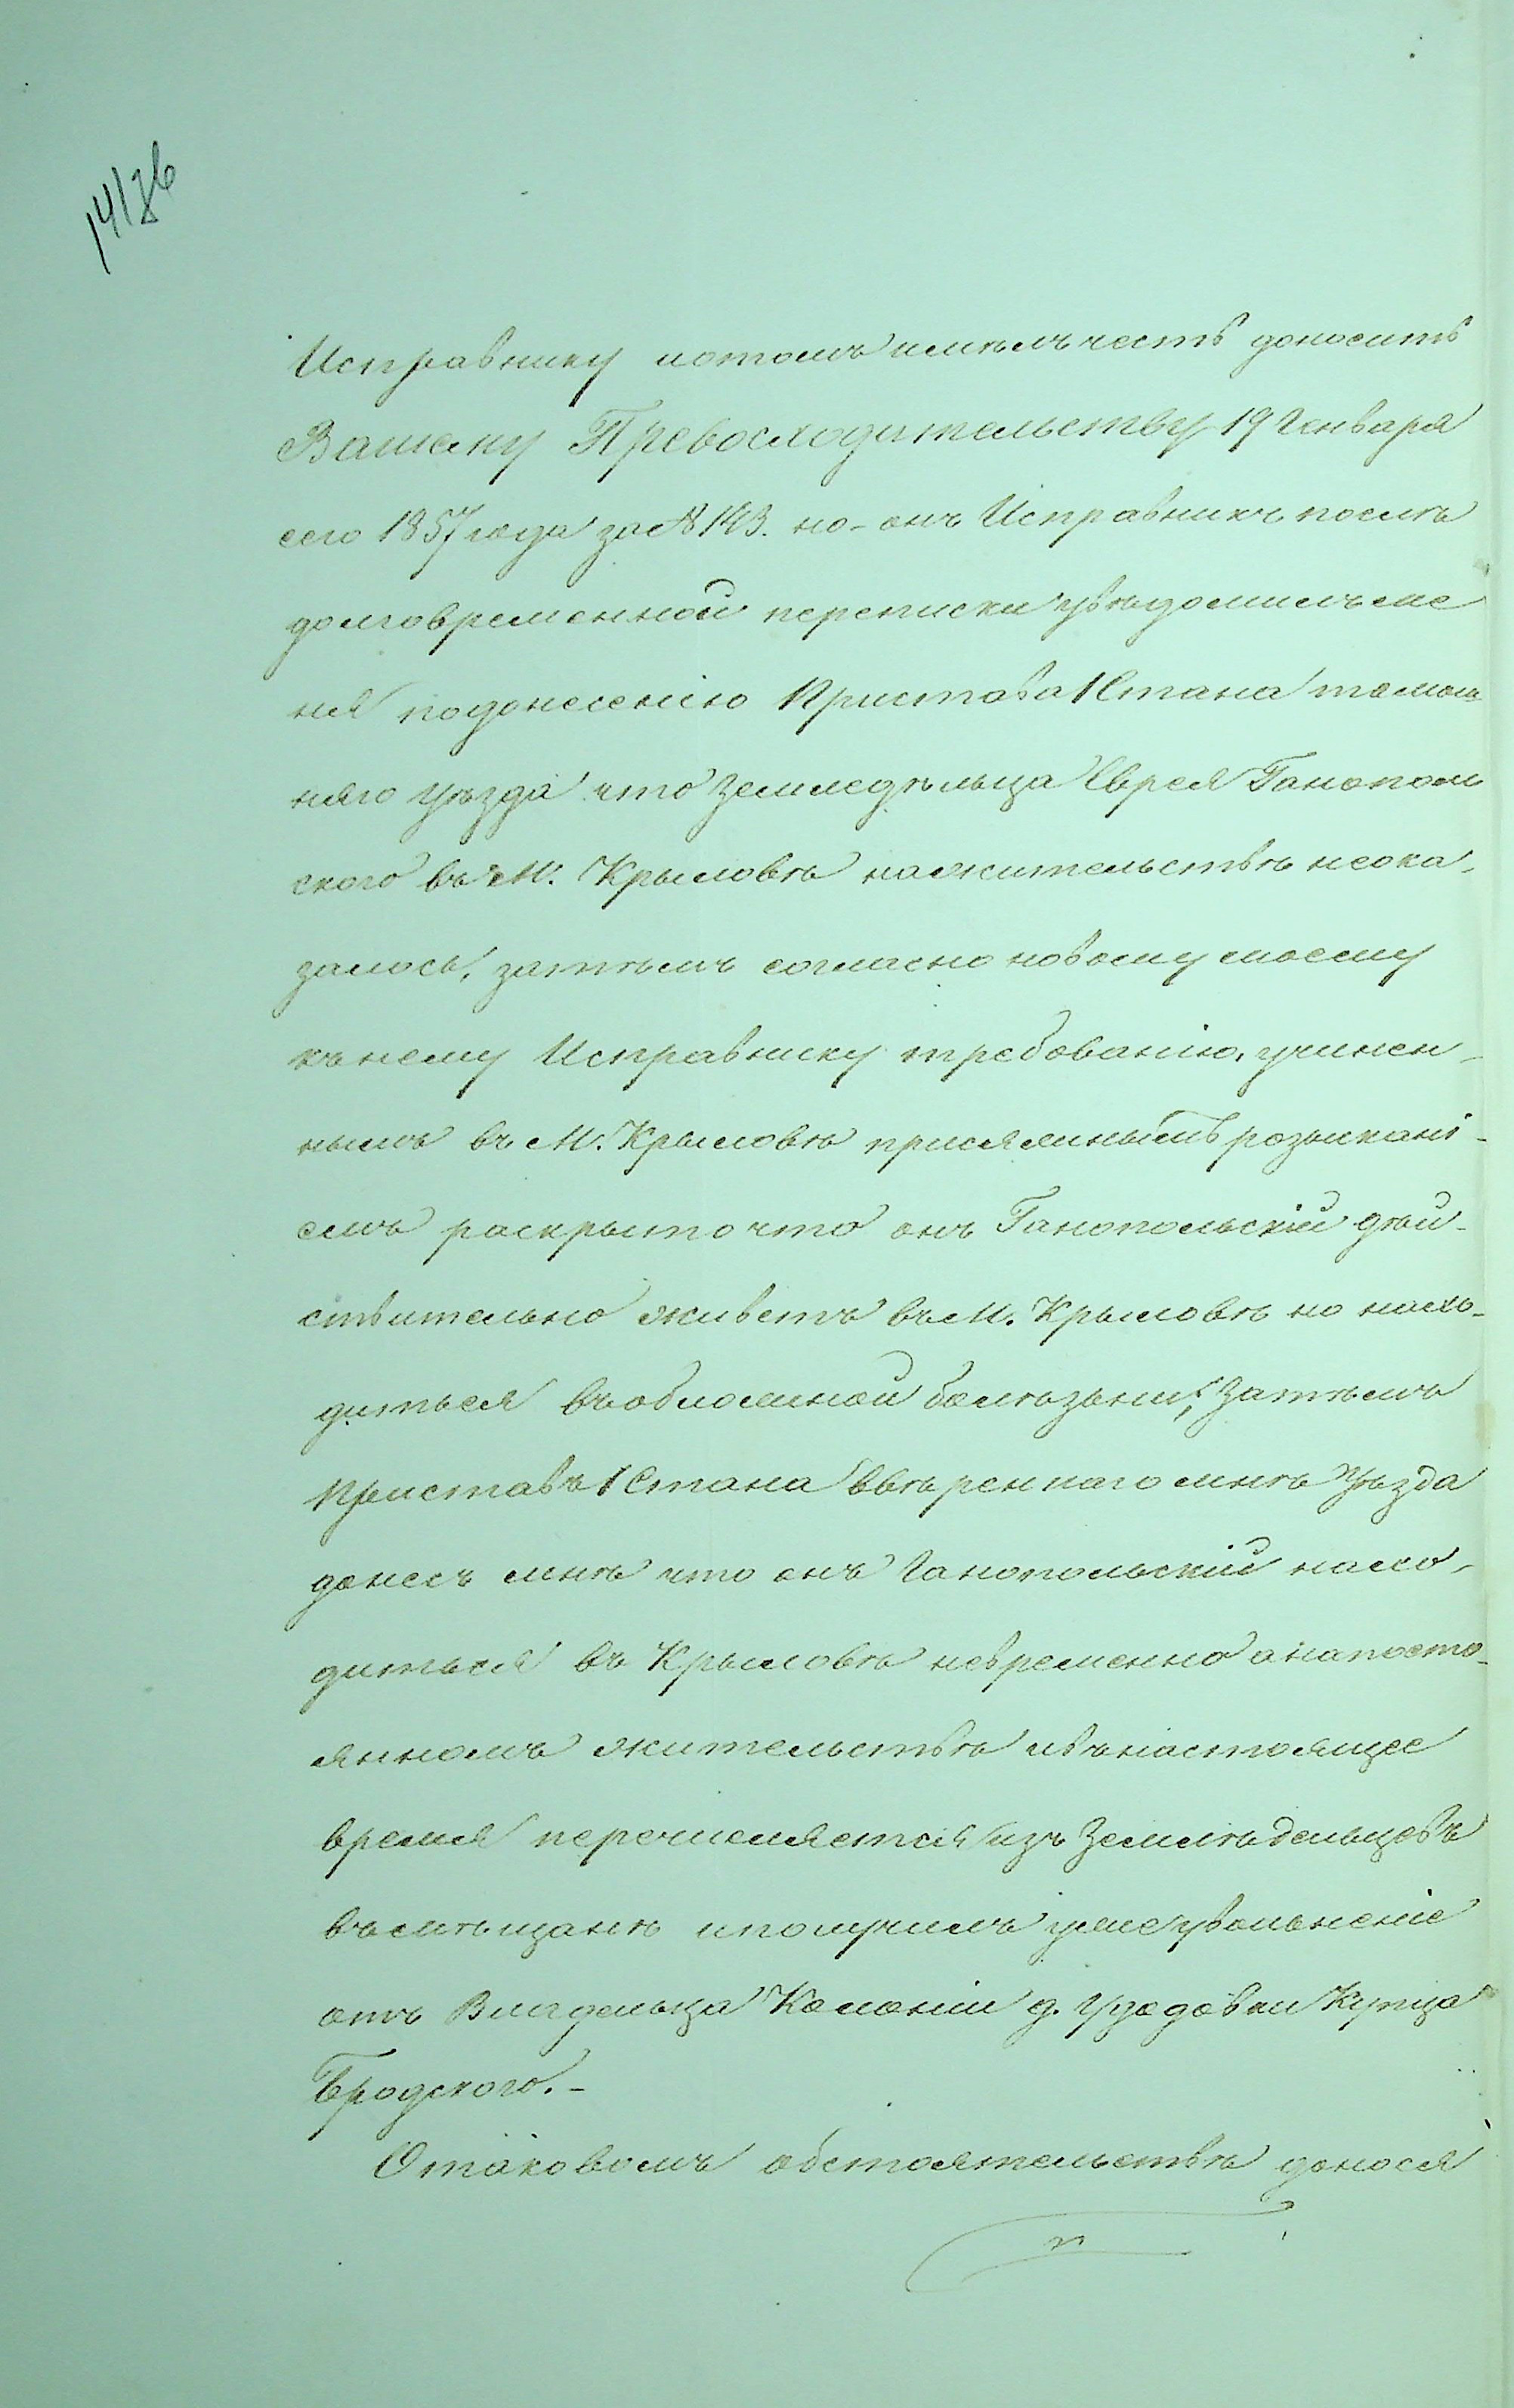 Исправнику иотомъ имѣлъ честь доносить
Вашему Превосходительству 19 Генваря
сего 1857 года за № 193. но-онъ Исправникъ послѣ
долговременной переписки увѣдомилъ ме
ня подонесенію Пристава 1 Стана тамош
няго уѣзда что Земледѣльца Еврея Ганополь
ского въ М. Крыловѣ нажительствѣ неока-
залось, затѣмъ согласно новому моему
къ нему Исправнику требованію, учинен-
нымъ въ М. Крыловѣ присяжнымъ розыскані-
емъ раскрыто что онъ Ганопольскій дѣй-
ствительно живетъ въ М. Крыловѣ но нахо-
диться въобложной болѣзьни; Затѣмъ
Приставъ 1 Стана ввѣреннаго мнѣ Уѣзда
донесъ мнѣ что онъ Ганопольскій нахо-
диться въ Крыловѣ невременно анапосто-
янномъ жительствѣ ивънастоящее
время перечисляется изъ Землѣдельцевъ
въмѣщанѣ иполучилъ уже увольненіе
отъ Владельца Колоніи д. Грздовки Купца
Бродского.-
Отаковомъ обстоятельствѣ донося